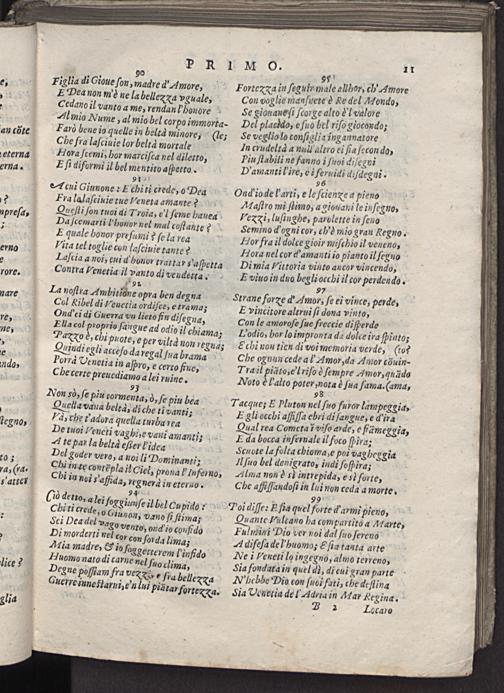 PRIMO. 11
90
Figlia di Gioue son, madre d'Amore,
E Dea non m'è ne la bellezza vguale,
Cedano il vanto a me, rendan l'honore
Al mio Nume, al mio bel corpo immorta-
Farò bene io quelle in beltà minore, (le;
Che fra lasciuie lor beltà mortale
Hora scemi, hor marcisca nel diletto,
E si diformi il bel mentito aspetto.
91
A cui Giunone: E chi ti crede, o Dea
Fra la lasciuie tue Veneta amante?
Questi son tuoi di Troia, e'l seme hauea
Da scemarti l'honor nel mal costante?
E quale honor presumi? se la rea
Vita tel toglie con lasciuie tante?
Lascia a noi, cui d'honor trattar s'aspetta
Contra Venetia il vanto di vendetta.
92
La nostra Ambitione opra ben degna
Col Ribel di Venetia ordisce, e trama;
Ond'ei di Guerra vn lieto fin disegna,
Ella col proprio sangue ad odio il chiama;
Pazzo è, chi puote, e per viltà non regna;
Quindi egli acceso da regal sua brama
Porrà Venetia in aspro, e certo fine,
Che certe preuediamo a lei ruine.
93
Non sò, se piu tormenta, ò, se piu bea
Quella vana beltà, di che ti vanti;
Và, che t'adora quella turba rea
De tuoi Veneti vaghi, e vani amanti;
A te par la beltà esser l'idea
Del goder vero, a noi li Dominanti;
Chi in te contẽpla il Ciel, prona l'Inferno,
Chi in noi s'affida, regnerà in eterno.
94
Ciò detto, a lei soggiunse il bel Cupido:
Chi ti crede, o Giunon, vano si stima;
Sei Dea del vago vento, ond'io confido
Di morderti nel cor con sorda lima;
Mia madre, & io soggetterem l'infido
Huomo nato di carne nel suo clima,
Degne possiam fra vezzi, e fra bellezza
Guerre innestarui, e'n lui piãtar fortezza.
95
Fortezza in seguir male allhor, ch'Amore
Con voglie mansuete è Re del Mondo,
Se gionanesi scorge alto è'l valore
Del placido, e suo bel riso giocondo;
Se veglio lo consiglia ingannatore
In crudeltà a null'altro ei sia secondo,
Piu stabili ne fanno i suoi disegni
D'amanti l'ire, e i feruidi disdegni.
96
Ond'io de l'arti, e le scienze a pieno
Mastro mi stimo, a gionani le insegno,
Vezzi, lusinghe, parolette in seno
Semino d'ogni cor, ch'è mio gran Regno.
Hor fra il dolce gioir mischio il veneno,
Hora nel cor d'amanti io pianto il segno
Di mia Vittoria vinto ancor vincendo,
E viuo in duo begli occhi il cor perdendo.
97
Strane forze d'Amor, se ei vince, perde,
E vincitore altrui si dona vinto,
Con le amorose sue freccie disperde
L'odio, hor lo impronta da dolce ira spinto;
E chi non tien di voi memoria verde, (to?
Che ognun cede a l'Amor, da Amor cõuin-
Tra il piãto, e'l riso è sempre Amor, quãdo
Noto è l'alto poter, nota è sua fama. (ama,
98
Tacque; E Pluton nel suo furor lampeggia,
E gli occhi affissa ebri di sangue, e d'ira
Qual rea Cometa i viso arde, e fiãmeggia,
E da bocca infernale il foco spira;
Scuote la folta chioma, e poi vagheggia
Il suo bel denigrato, indi sospira;
Alma non è sì intrepida, e sì forte,
Che affissandosi in lui non ceda a morte.
99
Poi disse: E sia quel forte d'armi pieno,
Quante Vulcano ha compartito a Marte,
Fulmini Dio ver noi dal suo sereno
A difesa de l'huomo; E sia tanta arte
Ne i Veneti lo ingegno, almo terreno,
Sia fondata in quel dì, di cui gran parte
N'hebbe Dio con suoi fati, che destina
Sia Venetia de l'Adria in Mar Regina.
B 2 Locaro